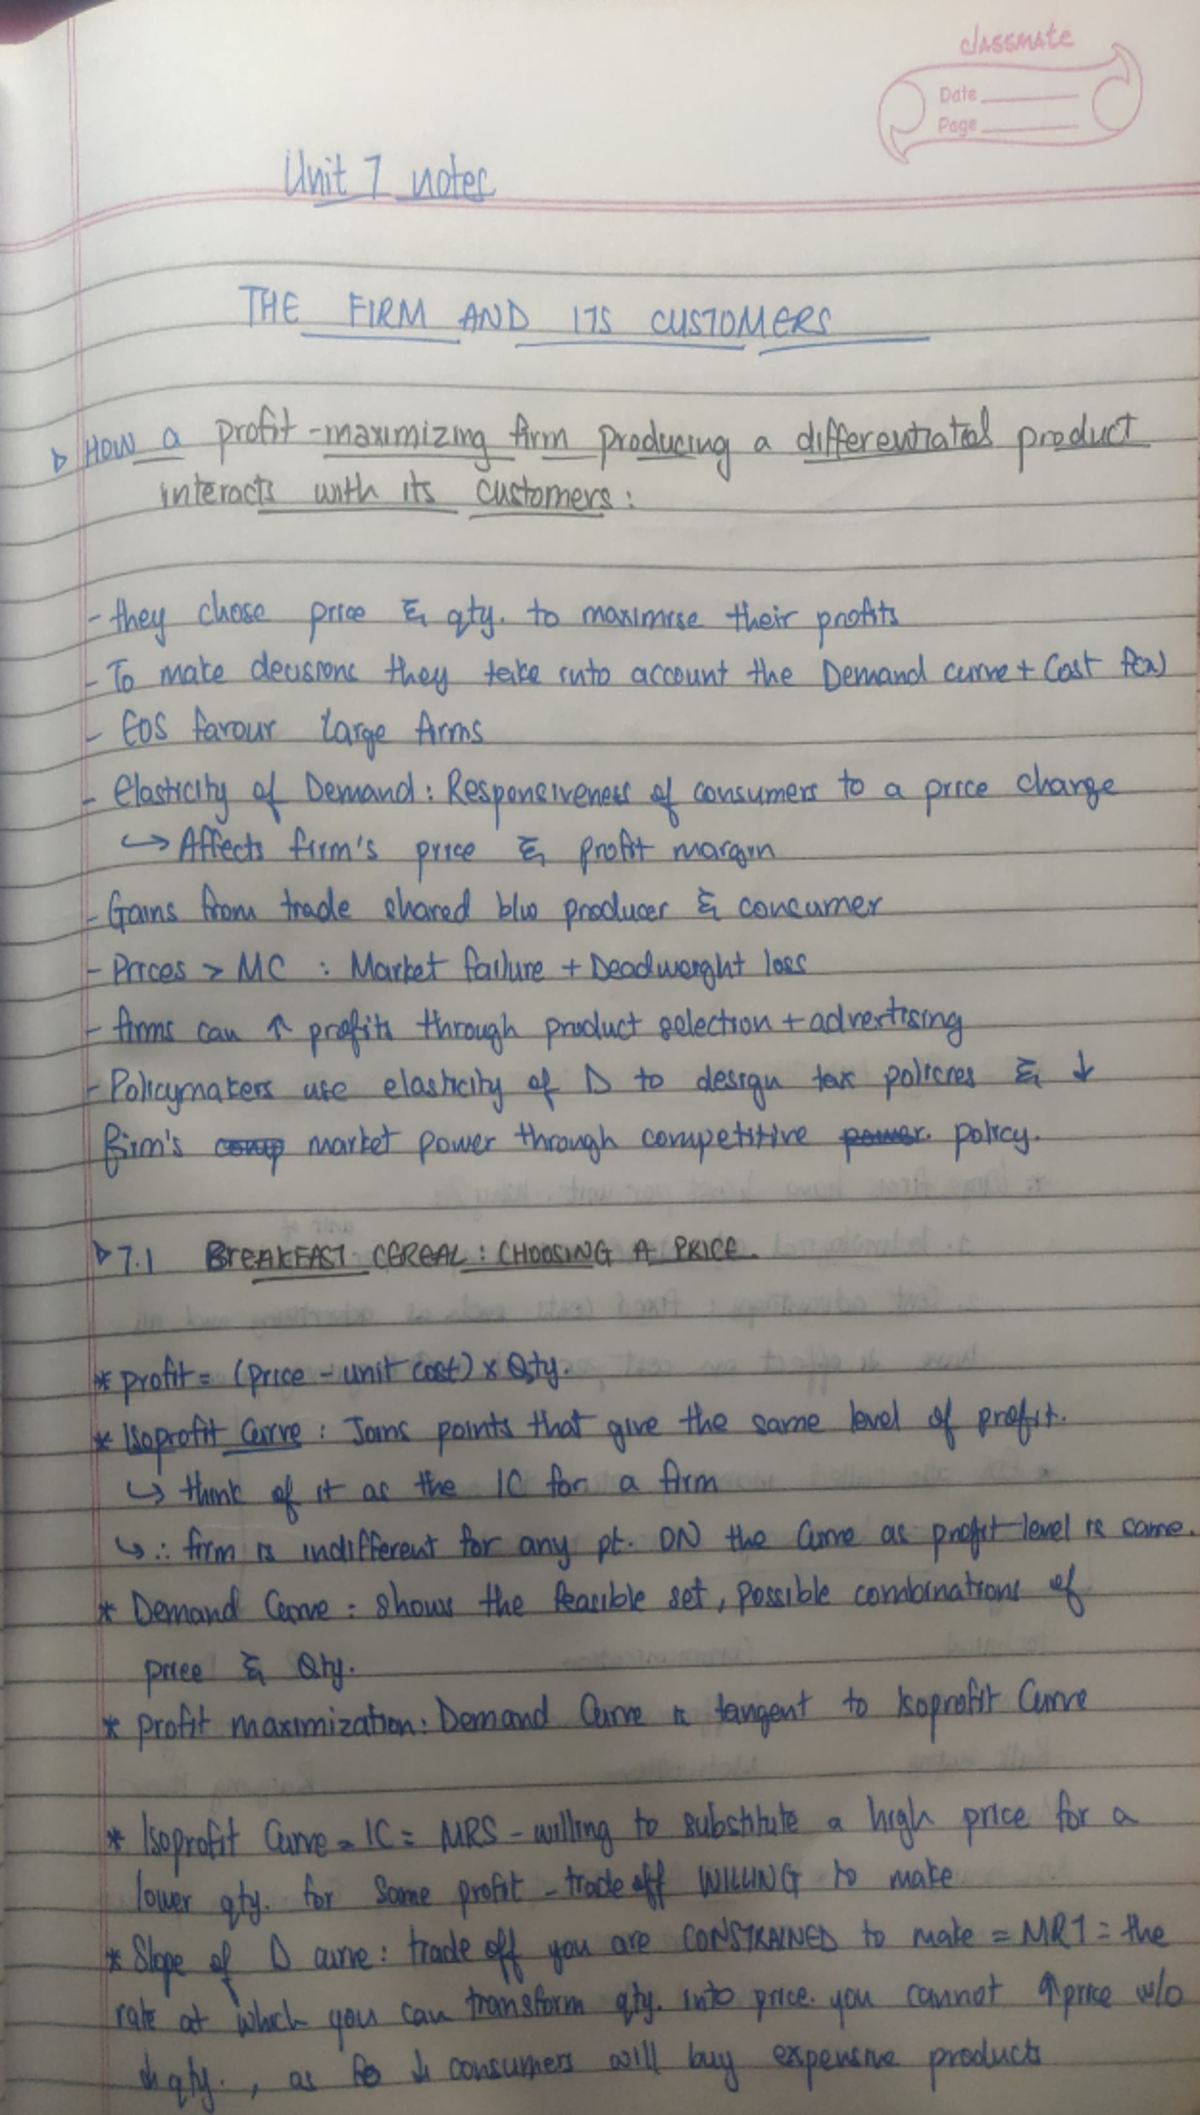 classmate
Date
Page
Unit 7 notes
THE FIRM AND ITS CUSTOMERS
▷ HOW a profit-maximizing firm producing a differentiated product
interacts with its customers:
- they chose price & qty. to maximise their profits
- To make decisions they take into account the Demand curve + Cost f(x)
- EOS favour large firms
- Elasticity of Demand: Responsiveness of consumers to a price change
↳ Affects firm's price & profit margin
- Gains from trade shared b/w producer & consumer
- Prices > MC : Market failure + Deadweight loss
- firms can ↑ profits through product selection + advertising
- Policymakers use elasticity of D to design tax policies & ↓
firm's comp market power through competitive power. policy.
▷ 7.1 BREAKFAST CEREAL: CHOOSING A PRICE.
* profit = (price - unit cost) x Qty.
* Isoprofit Curve: Joins points that give the same level of profit.
↳ think of it as the IC for a firm
↳ ∴ firm is indifferent for any pt. ON the curve as profit level is same.
* Demand Curve: shows the feasible set, possible combinations of
price & Qty.
* profit maximization: Demand Curve is tangent to Isoprofit Curve
* Isoprofit Curve = IC = MRS - willing to substitute a high price for a
lower qty. for same profit - trade off WILLING to make
* Slope of D curve: trade off you are CONSTRAINED to make = MRT = the
rate at which you can transform qty. into price. you cannot ↑ price w/o
↓ qty., as ↓ consumers will buy expensive products